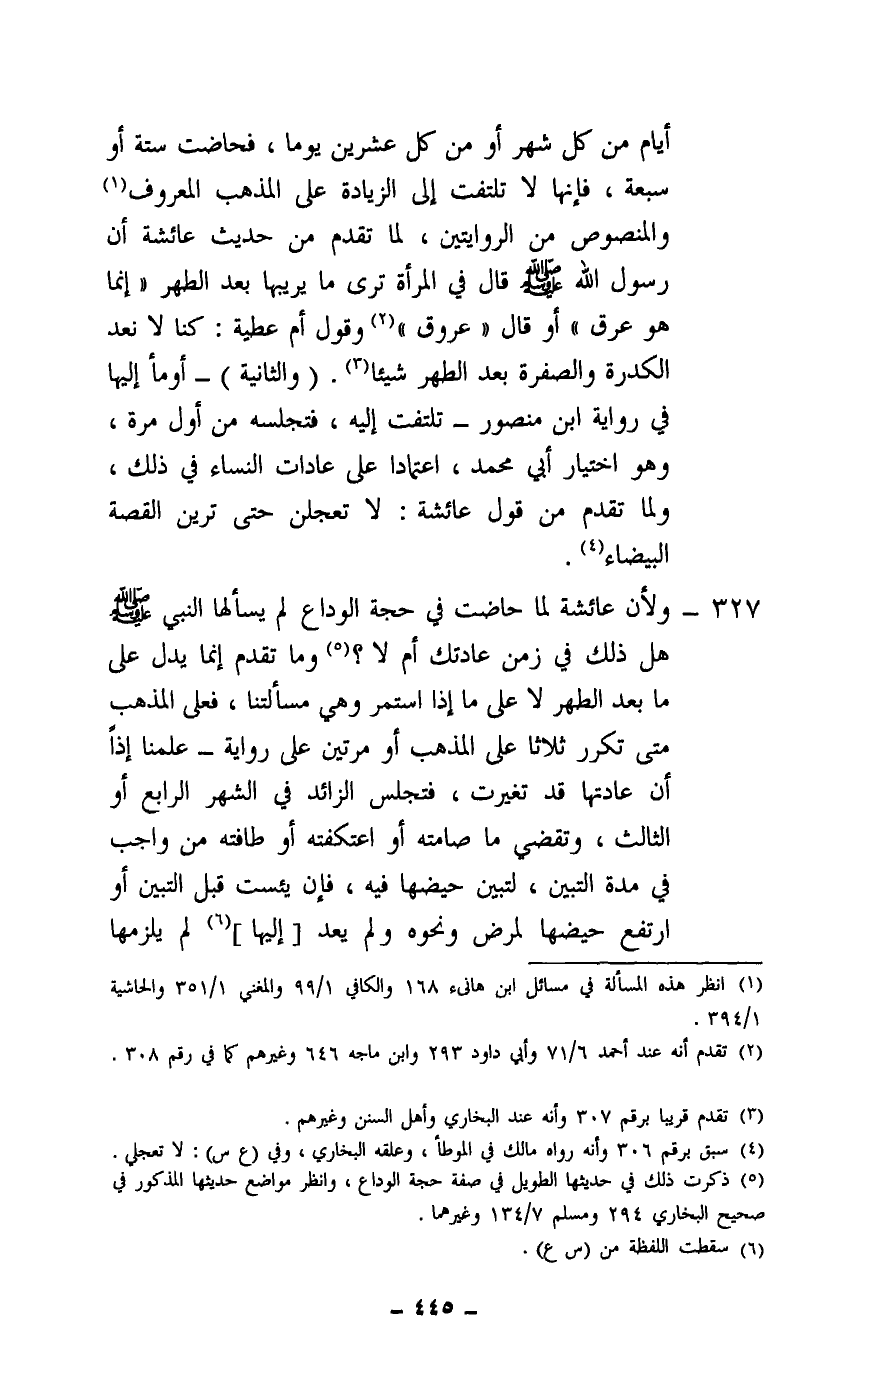 أيام من كل شهر أو من كل عشرين يوما ، فحاضت ستة أو
سبعة ، فإنها لا تلتفت إلى الزيادة على المذهب المعروف(١)
والمنصوص من الروايتين ، لما تقدم من حديث عائشة أن
رسول الله ﷺ قال في المرأة ترى ما يريبها بعد الطهر « إنما
هو عرق » أو قال « عروق »(٢) وقول أم عطية : كنا لا نعد
الكدرة والصفرة بعد الطهر شيئا(٣) . ( والثانية ) – أومأ إليها
في رواية ابن منصور – تلتفت إليه ، فتجلسه من أول مرة ،
وهو اختيار أبي محمد ، اعتمادا على عادات النساء في ذلك ،
ولما تقدم من قول عائشة : لا تعجلن حتى ترين القصة
البيضاء(٤) .
٣٢٧ – ولأن عائشة لما حاضت في حجة الوداع لم يسألها النبي ﷺ
هل ذلك في زمن عادتك أم لا ؟(٥) وما تقدم إنما يدل على
ما بعد الطهر لا على ما إذا استمر وهي مسألتنا ، فعلى المذهب
متى تكرر ثلاثا على المذهب أو مرتين على رواية – علمنا إذاً
أن عادتها قد تغيرت ، فتجلس الزائد في الشهر الرابع أو
الثالث ، وتقضي ما صامته أو اعتكفته أو طافته من واجب
في مدة التبين ، لتبين حيضها فيه ، فإن يئست قبل التبين أو
ارتفع حيضها لمرض ونحوه ولم يعد [ إليها ](٦) لم يلزمها
(١) انظر هذه المسألة في مسائل ابن هانىء ١٦٨ والكافي ٩٩/١ والمغني ٣٥١/١ والحاشية
٣٩٤/١ .
(٢) تقدم أنه عند أحمد ٧١/٦ وأبي داود ٢٩٣ وابن ماجه ٦٤٦ وغيرهم كما في رقم ٣٠٨ .
(٣) تقدم قريبا برقم ٣٠٧ وأنه عند البخاري وأهل السنن وغيرهم .
(٤) سبق برقم ٣٠٦ وأنه رواه مالك في الموطأ ، وعلقه البخاري ، وفي (ع س) : لا تعجلي .
(٥) ذكرت ذلك في حديثها الطويل في صفة حجة الوداع ، وانظر مواضع حديثها المذكور في
صحيح البخاري ٢٩٤ ومسلم ١٣٤/٧ وغيرهما .
(٦) سقطت اللفظة من (س ع) .
– ٤٤٥ –